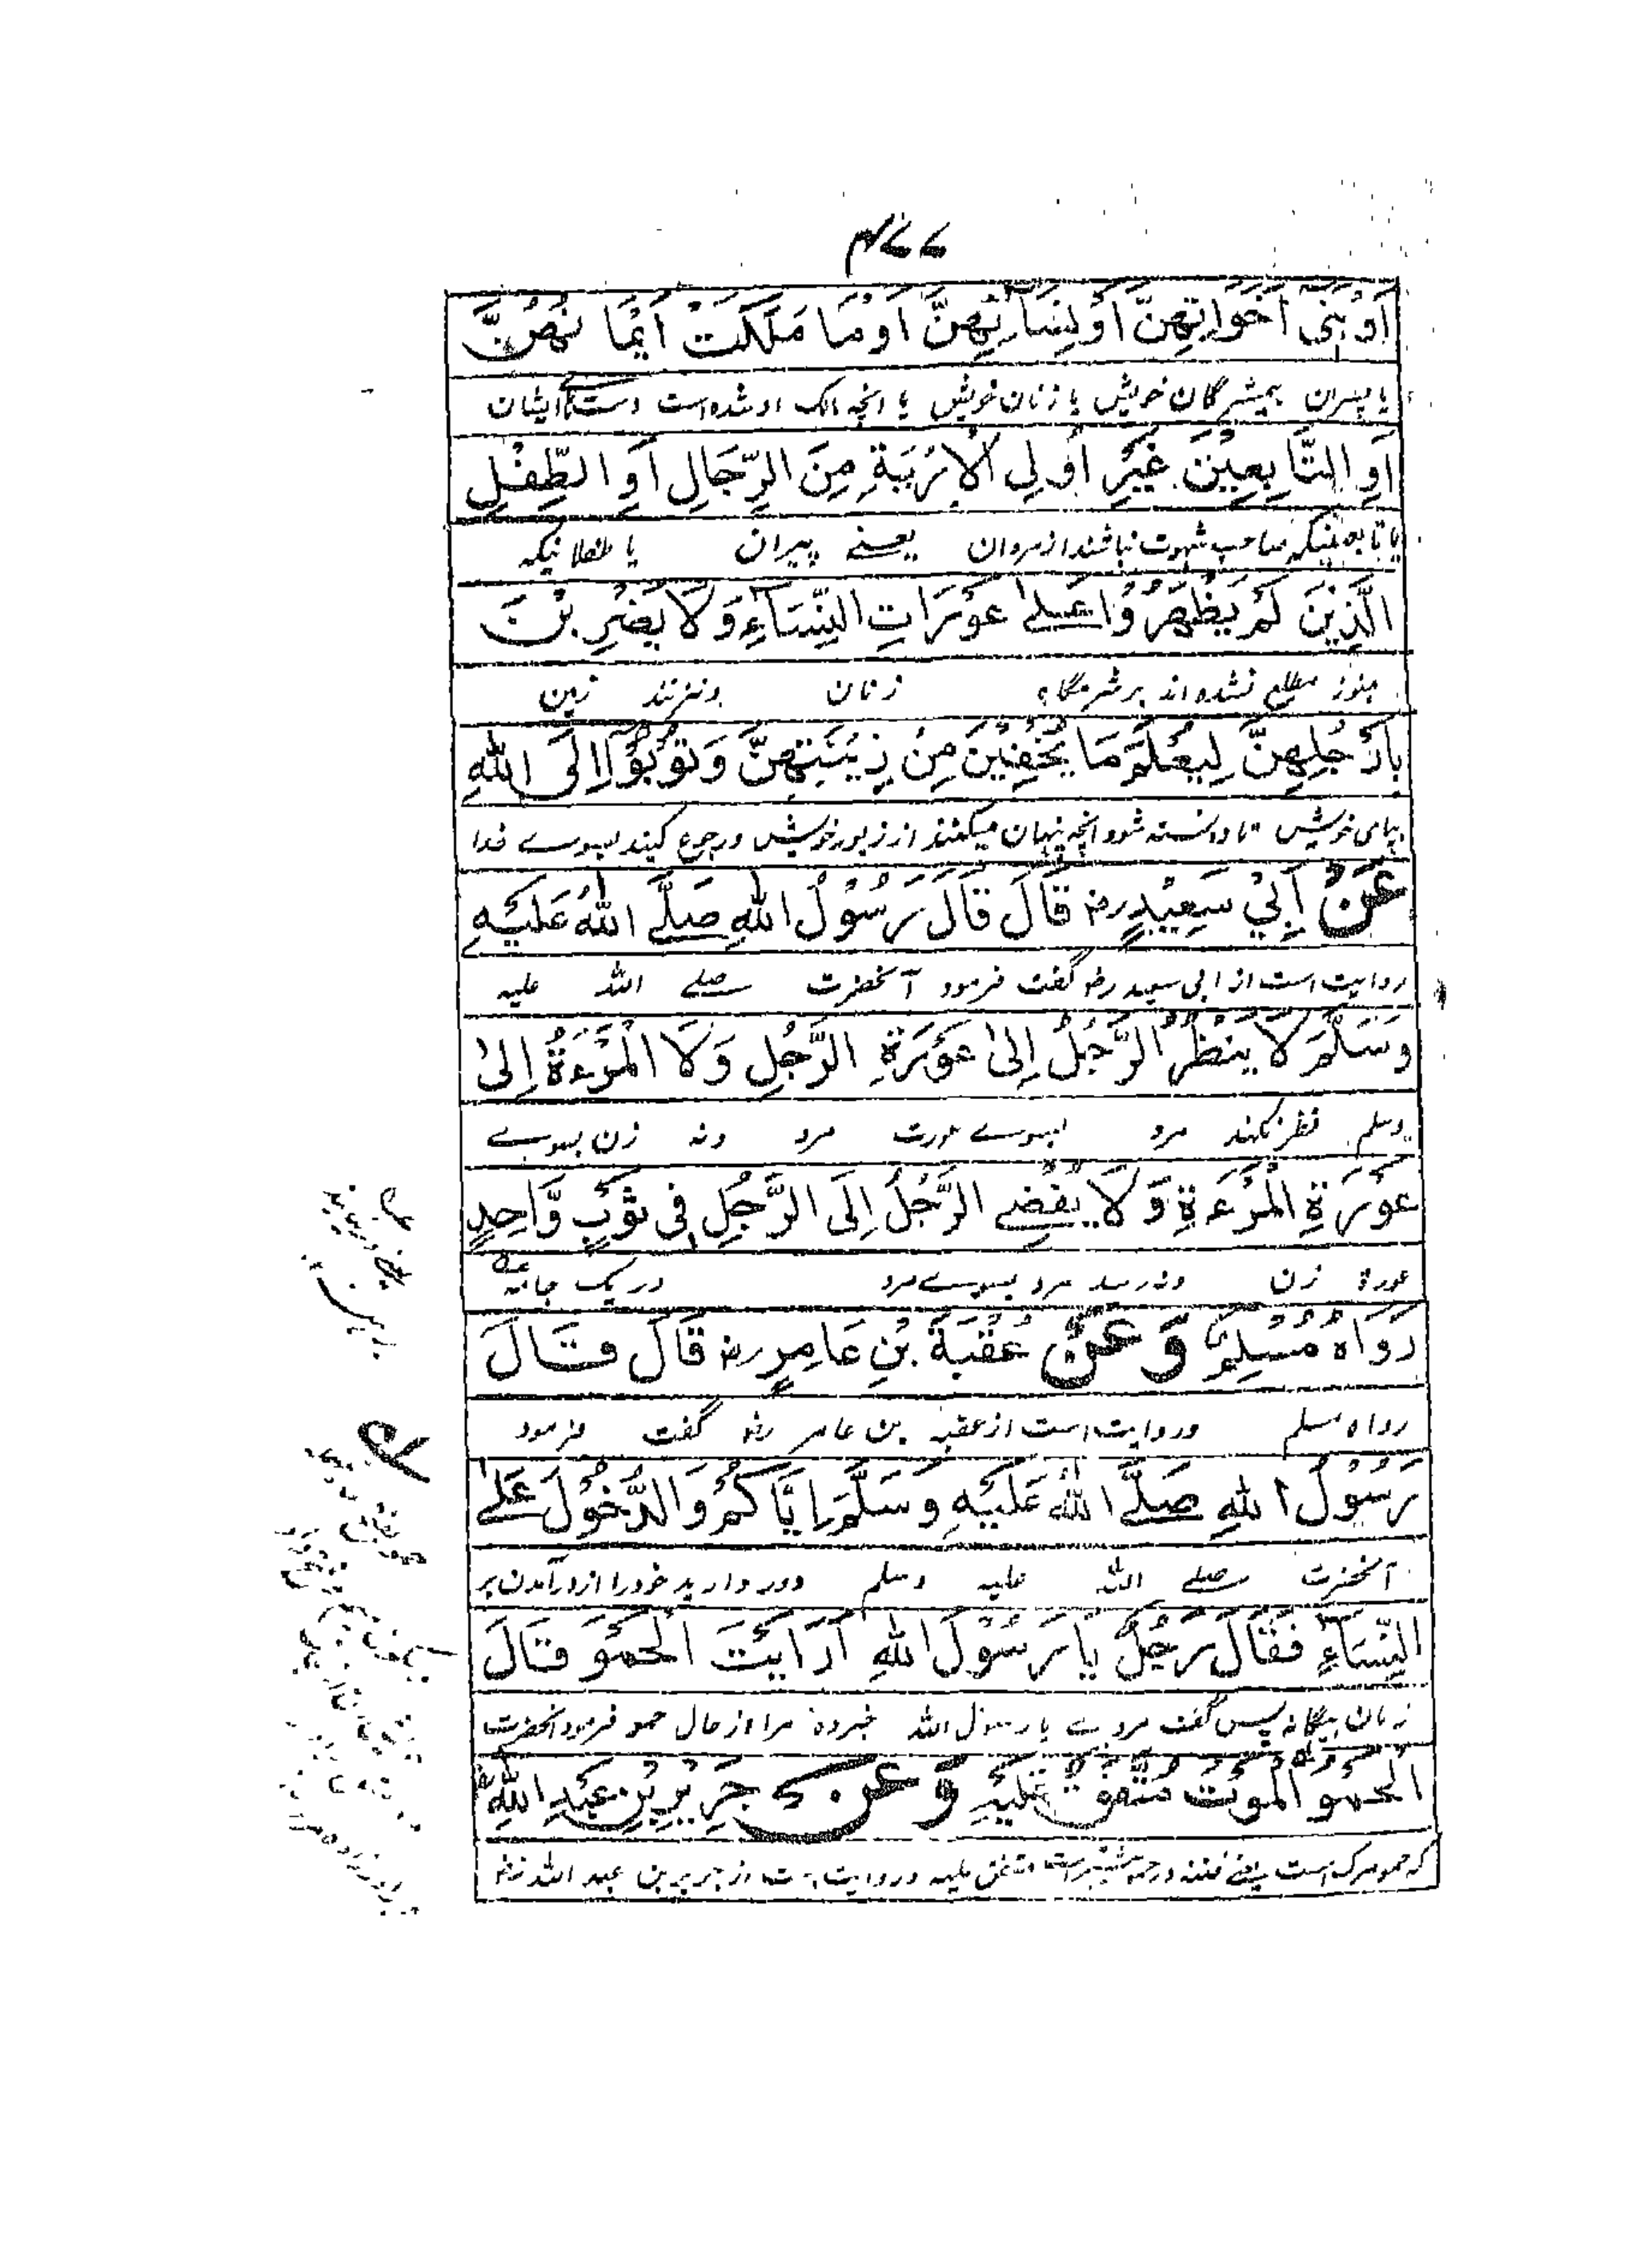 ۴۷۷
اَوْ بَنِی اَخَوَاتِهِنَّ اَوْ نِسَآئِهِنَّ اَوْ مَا مَلَکَتْ اَیْمَا نُهُنَّ
یا پسران همشیرگان خویش یا زنان خویش یا انچه مالک او شده است دستهای ایشان
اَوِ التَّابِعِیْنَ غَیْرِ اُولِی الْاِرْبَةِ مِنَ الرِّجَالِ اَوِ الطِّفْلِ
صاحب شهوت نباشند از مردان یعنے پیران یا طفلانیکه
الَّذِیْنَ لَمْ یَظْهَرُوْا عَلٰے عَوْرَاتِ النِّسَآءِ وَلَا یَضْرِبْنَ
هنوز مطلع نشده اند بر شرمگاه زنان و نزنند زمین
بِاَرْجُلِهِنَّ لِیُعْلَمَ مَا یُخْفِیْنَ مِنْ زِیْنَتِهِنَّ وَتُوْبُوْآ اِلَی اللّٰهِ
بپای خویش تا دانسته شود انچه پنهان میکنند از زیور خویش و رجوع کنید بسوے خدا
عَنْ اَبِیْ سَعِیْدٍ رض قَالَ قَالَ رَسُوْلُ اللّٰهِ صَلَّے اللّٰهُ عَلَیْهِ
روایت است از ابی سعید رض گفت فرمود آنحضرت صلے الله علیه
وَسَلَّمَ لَا یَنْظُرُ الرَّجُلُ اِلٰی عَوْرَةِ الرَّجُلِ وَلَا الْمَرْءَةُ اِلٰی
وسلم نظر نکند مرد بسوے عورت مرد ونه زن بسوے
عَوْرَةِ الْمَرْءَةِ وَلَا یُفْضِے الرَّجُلُ اِلَی الرَّجُلِ فِی ثَوْبٍ وَّاحِدٍ
عورة زن ونه رسد مرد بسوے مرد در یک جامه
رَوَاهُ مُسْلِمٌ وَعَنْ عُقْبَةَ بْنِ عَامِرٍ رض قَالَ قَالَ
رواه مسلم وروایت است از عقبه بن عامر رض گفت فرمود
رَسُوْلُ اللّٰهِ صَلَّے اللّٰهُ عَلَیْهِ وَسَلَّمَ اِیَّاکُمْ وَالدُّخُوْلَ عَلٰے
آنحضرت صلے الله علیه وسلم دور دارید خود را از درآمدن بر
النِّسَآءِ فَقَالَ رَجُلٌ یَا رَسُوْلَ اللّٰهِ اَرَاَیْتَ الْحَمْوَ قَالَ
زنان بیگانه پس گفت مردے یا رسول الله خبرده مرا از حال حمو فرمود آنحضرت
اَلْحَمْوُ الْمَوْتُ مُتَّفَقٌ عَلَیْهِ وَعَنْ جَرِیْرِ بْنِ عَبْدِ اللّٰهِ رض
که حمو مرگ است یعنے فتنه در حمو بیشتر است متفق علیه وروایت است از جریر بن عبد الله رض